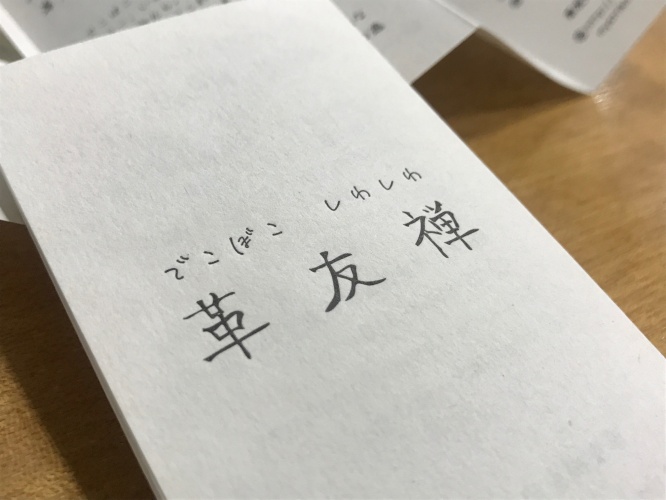 でこぼこ しわしわ
革友禅